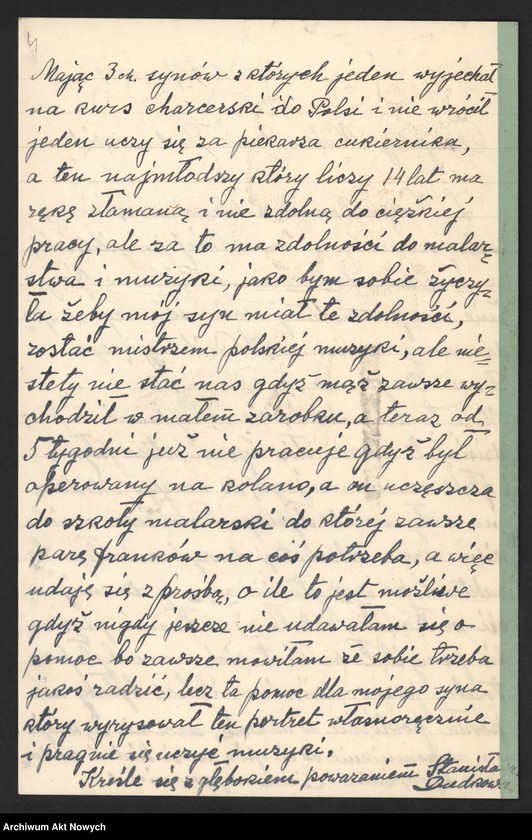 4
Mając 3ch. synów z których jeden wyjechał
na kurs charcerski do Polsi i nie wrócił
jeden uczy się za piekarza cukiernika,
a ten najmłodszy który liczy 14 lat ma
rękę złamaną i nie zdolną do ciężkiej
pracy, ale za to ma zdolności do malar-
stwa i muzyki, jako bym sobie życzy-
ła żeby mój syn miał te zdolności,
zostać mistrzem polskiej muzyki, ale nie-
stety nie stać nas gdyż mąż zawsze wy-
chodził w małem zarobku, a teraz od
5 tygodni już nie pracuje gdyż był
operowany na kolano, a on uczęszcza
do szkoły malarski do której zawsze
parę franków na coś potrzeba, a więc
udają się z prośbą, o ile to jest możliwe
gdyż nigdy jeszcze nie udawałam się o
pomoc bo zawsze mowiłam że sobie trzeba
jakoś radzić, lecz ta pomoc dla mojego syna
który wyrysował ten portret własnoręcznie
i pragnie się uczyć muzyki.
Kreśle się z głębokiem poważaniem Stanisława
Archiwum Akt Nowych